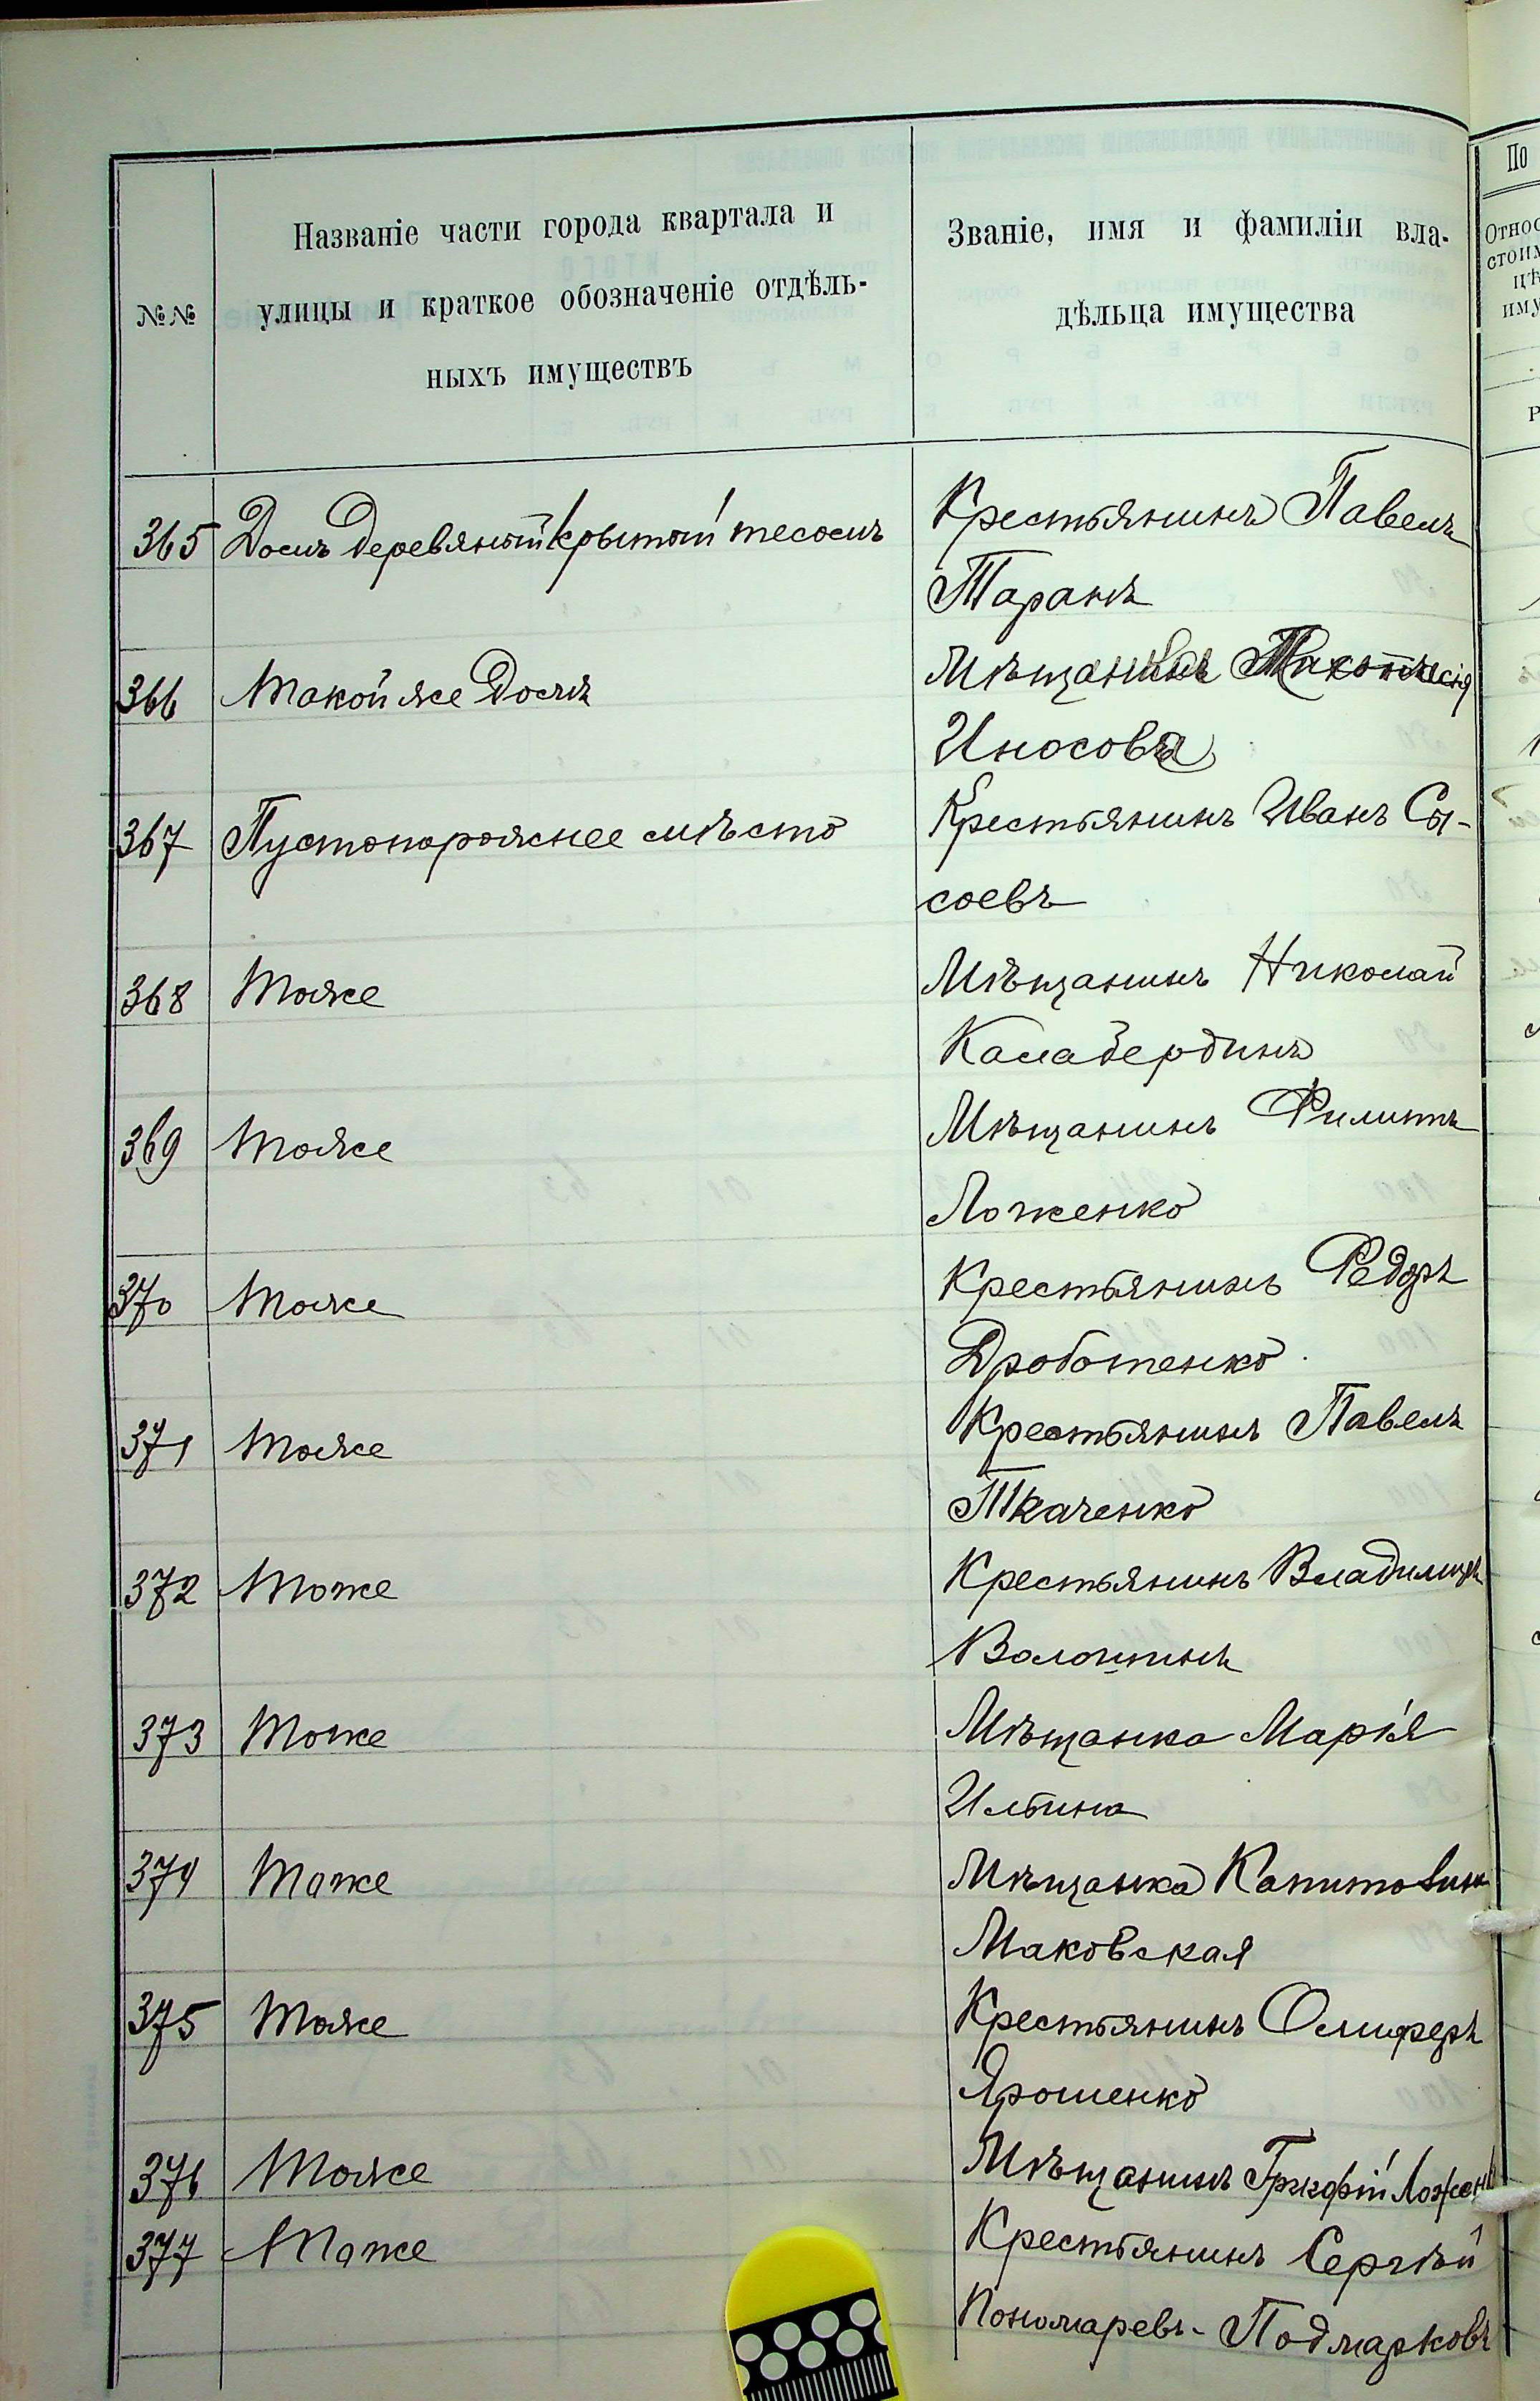 №№
Названіе части города квартала и
улицы и краткое обозначеніе отдѣль-
ныхъ имуществъ
Званіе, имя и фамиліи вла-
дѣльца имущества
По
365 Домъ деревяный крытый тесомъ Крестьянинъ Павелъ
Таранъ
366 Такой же домъ
Иносова
367 Пустопорожнее мѣсто Крестьянинъ Иванъ Сы-
соевъ
368 Тоже Мѣщанинъ Николай
Калабердинъ
369 Тоже Мѣщанинъ Филиппъ
Логженко
370 Тоже Крестьянинъ Федоръ
Дроботенко
371 Тоже Крестьянинъ Павелъ
Ткаченко
372 Тоже Крестьянинъ Владимиръ
Волошинъ
373 Тоже Мѣщанка Марія
Ильина
374 Тоже Мѣщанка
Маковская
375 Тоже Крестьянинъ
Ярошенко
376 Тоже Мѣщанинъ
377 Тоже Крестьянинъ Сергѣй
Пономаревъ-Подмарковъ